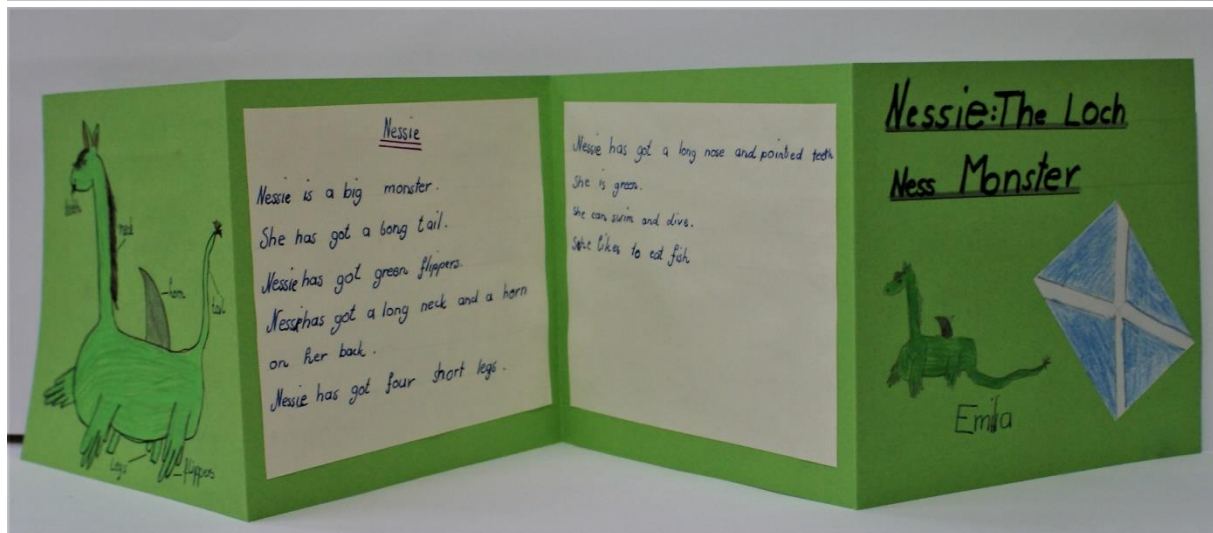 teeth
neck
horn
tail
legs
flippers
Nessie
Nessie is a big monster.
She has got a bong tail.
Nessie has got green flippers.
Nessie has got a long neck and a horn
on her back.
Nessie has got four short legs.
Nessie has got a long nose and pointed teeth
She is green.
she can swim and dive.
She likes to eat fish
Nessie: The Loch
Ness Monster
Emilia